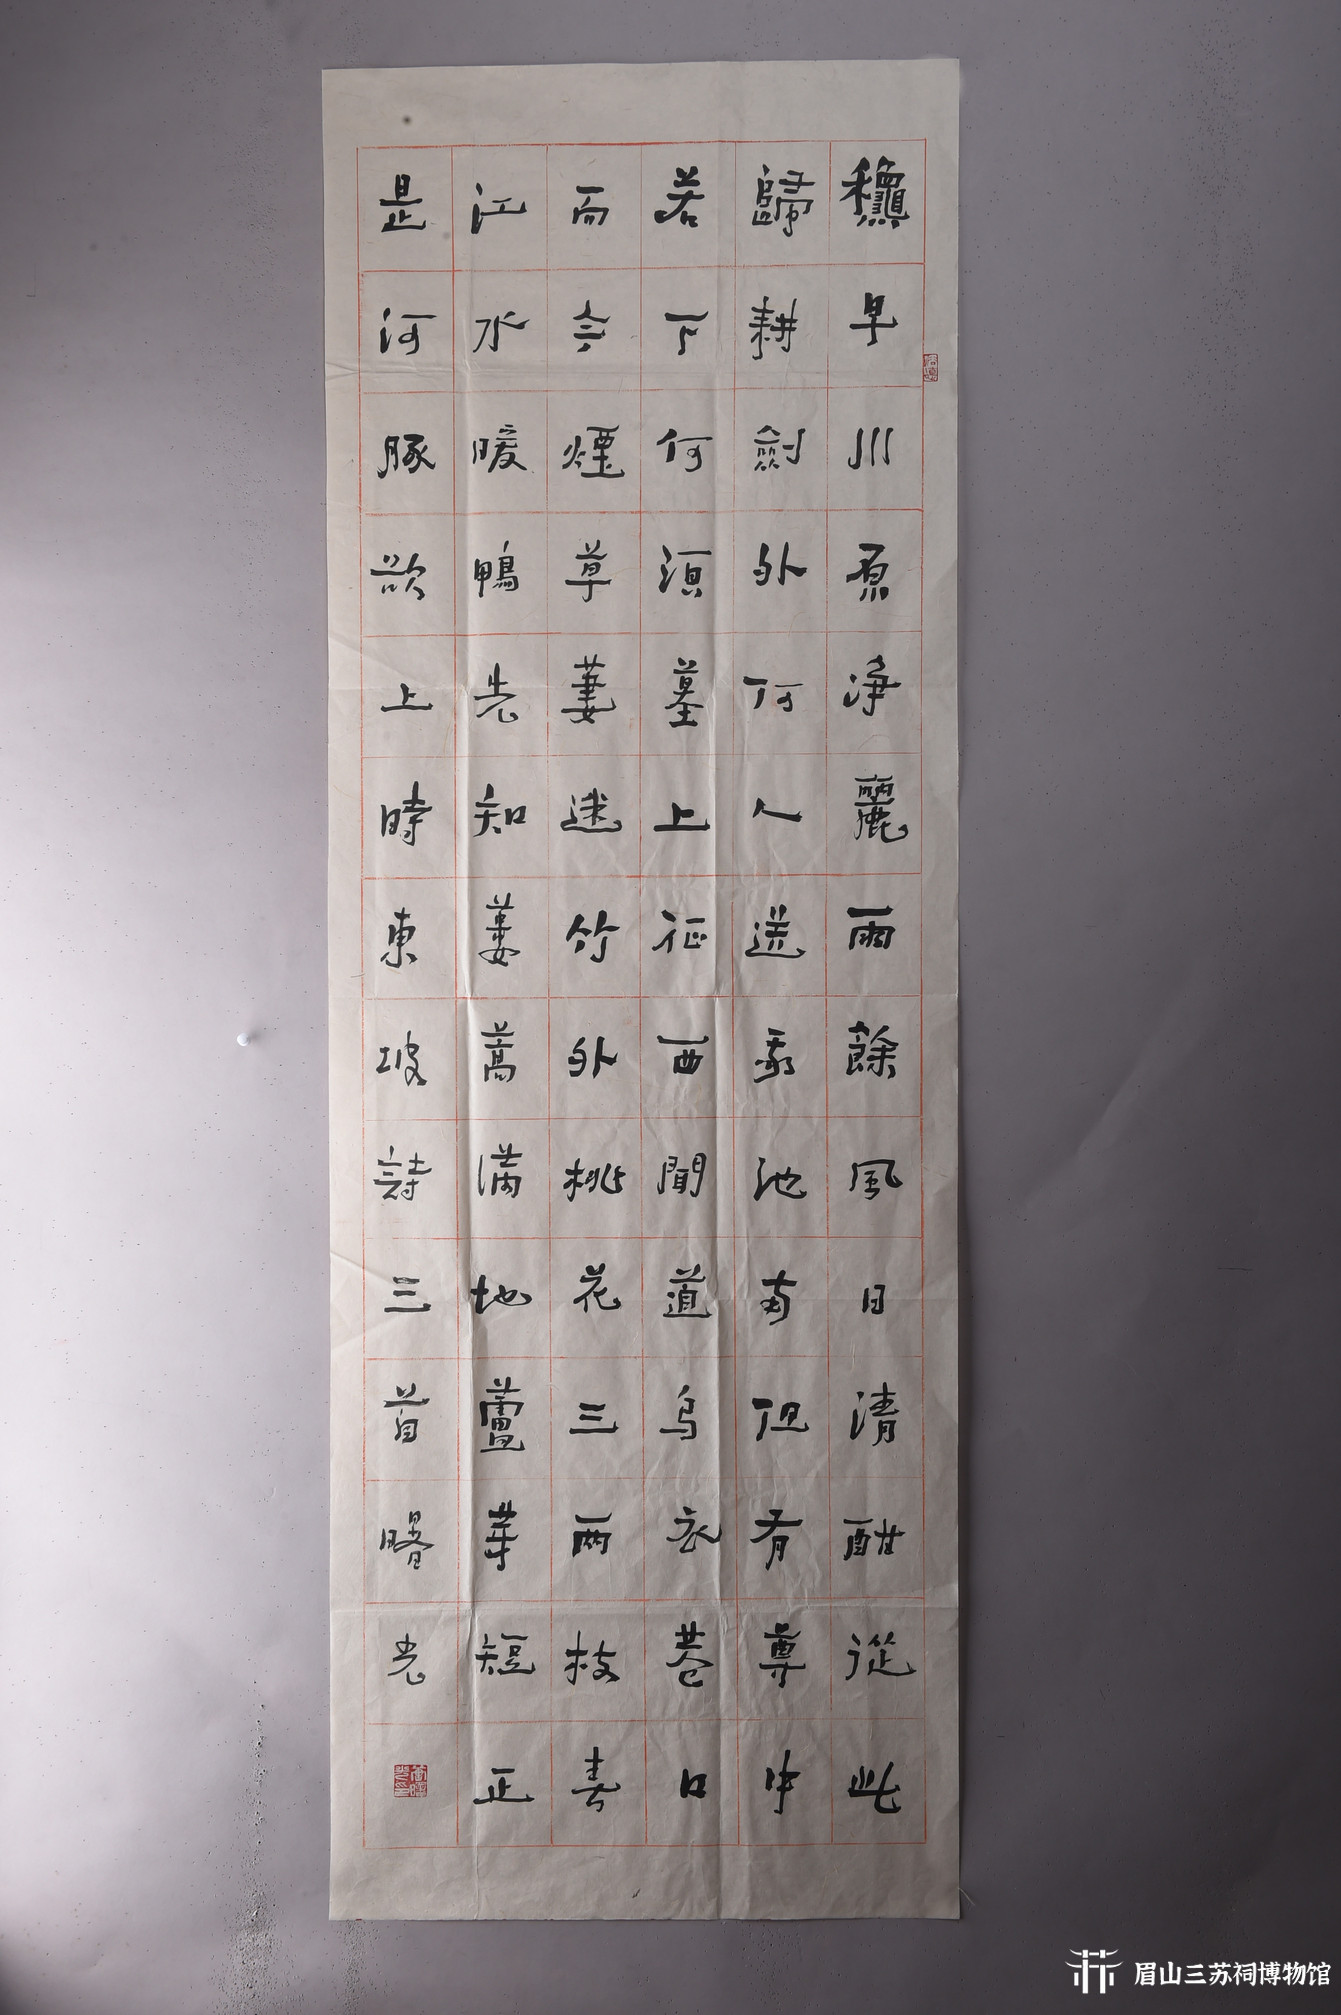 龝早川原淨麗雨餘風日清酣從此
歸耕劍外何人送我池南但有尊中
若下何須墓上征西聞道烏衣巷口
而今煙草萋迷竹外桃花三兩枝春
江水暖鴨先知蔞蒿滿地蘆芽短正
是河豚欲上時東坡詩三首曙光
眉山三苏祠博物馆